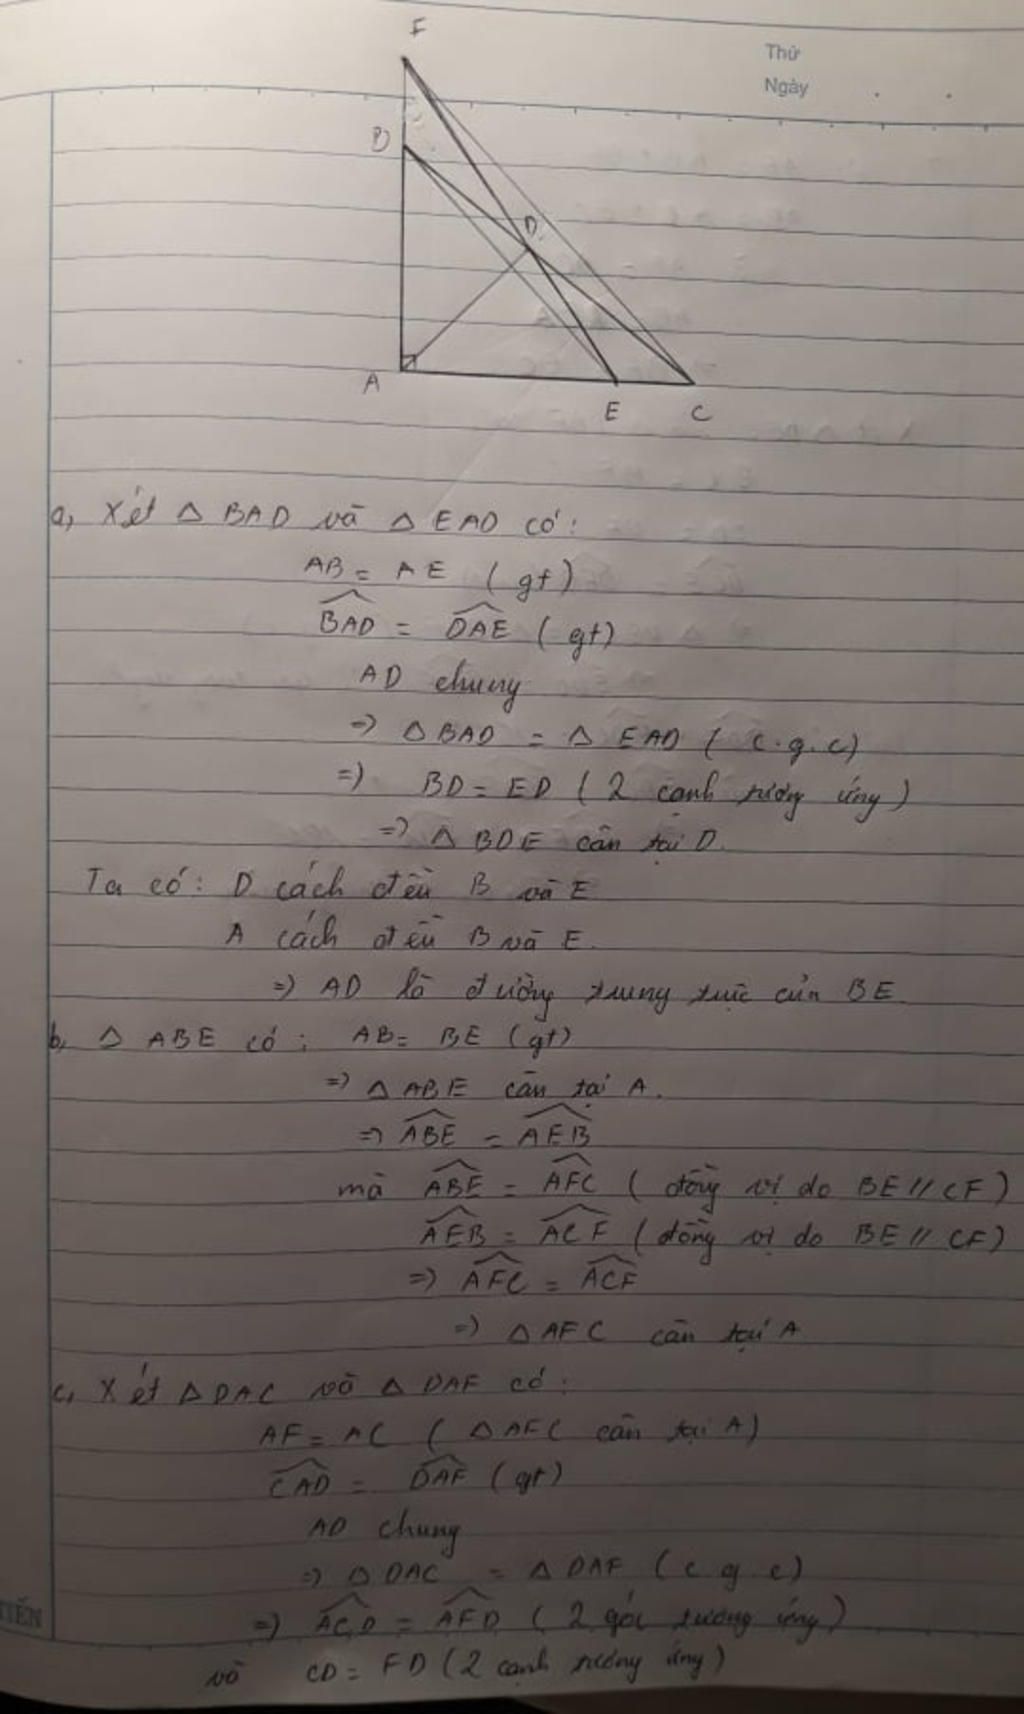 F
Thứ
Ngày
B
D
A
E
C
a, Xét △ BAD và △ EAD có:
AB = AE (gt)
\widehat{BAD} = \widehat{DAE} (gt)
AD chung
=> △ BAD = △ EAD ( c.g.c)
=> BD = ED ( 2 cạnh tương ứng )
=> △ BDE cân tại D.
Ta có: D cách đều B và E
A cách đều B và E.
=> AD là đường trung trực của BE
b, △ ABE có : AB = BE (gt)
=> △ ABE cân tại A.
=> \widehat{ABE} = \widehat{AEB}
mà \widehat{ABE} = \widehat{AFC} ( đồng vị do BE // CF )
\widehat{AEB} = \widehat{ACF} ( đồng vị do BE // CF)
=> \widehat{AFC} = \widehat{ACF}
=> △ AFC cân tại A
c, Xét △ DAC và △ DAF có :
AF = AC ( △ AFC cân tại A)
\widehat{CAD} = \widehat{DAF} (gt)
AD chung
=> △ DAC = △ DAF ( c g c)
=> \widehat{ACD} = \widehat{AFD} ( 2 góc tương ứng )
và CD = FD ( 2 cạnh tương ứng )
TIẾN